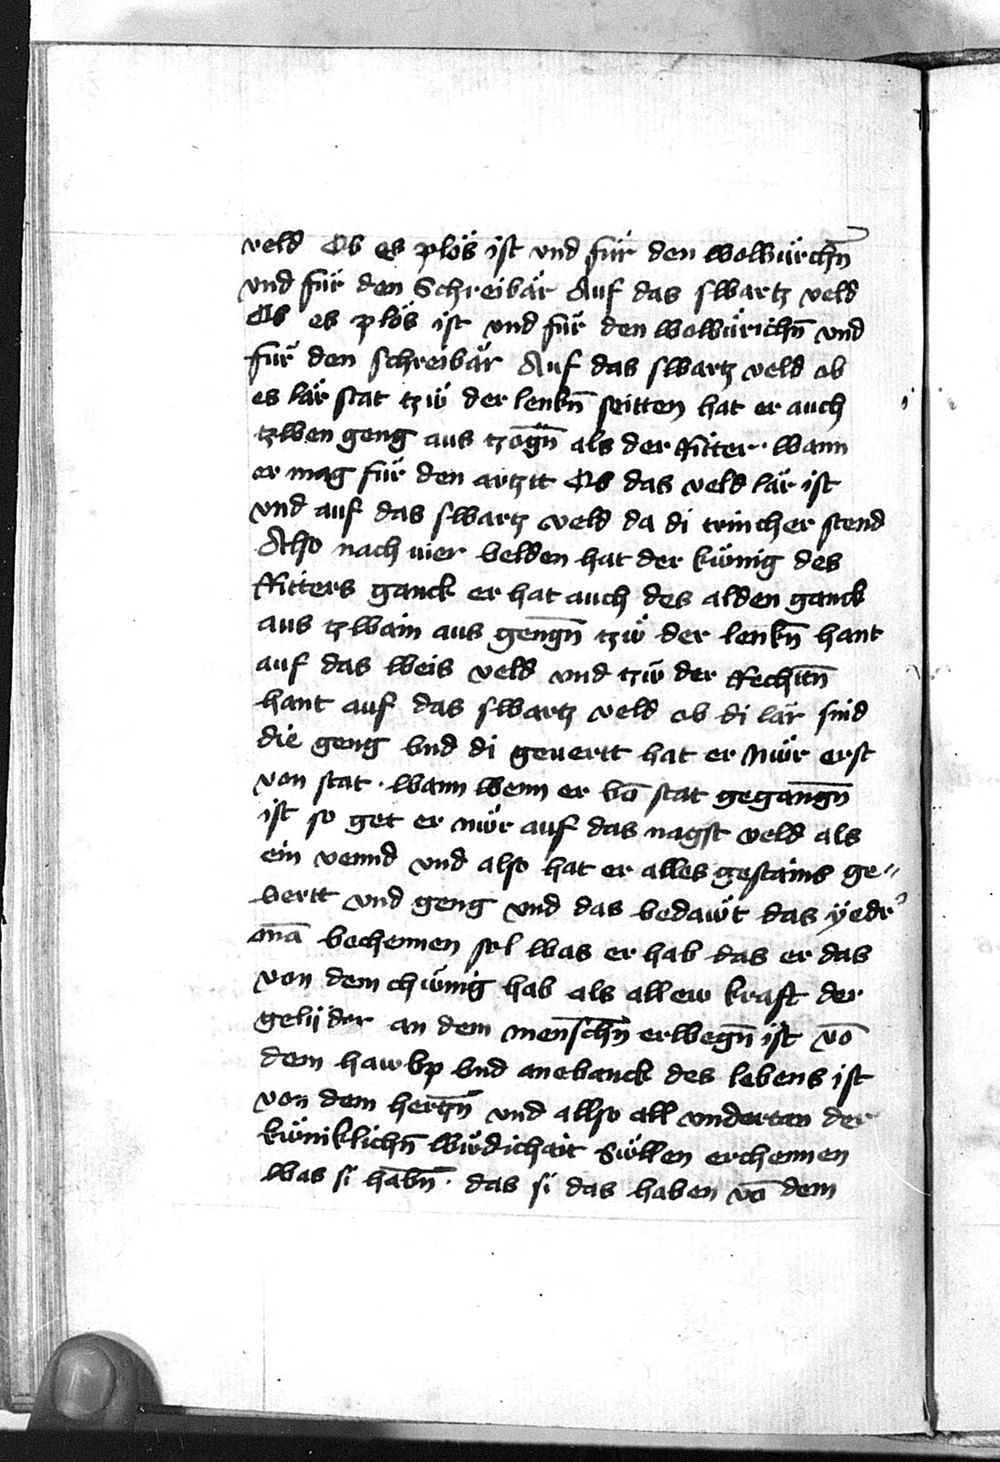 veld Ob es plös ist vnd für den wolbürchn̄
vnd für den Schreibär Auf das swartz veld
Ob es plös ist vnd für den wolwürichn̄ vnd
für den schreibär Auf das swartz veld ob
es lär stat tzẅ der lenkn̄ seitten hat er auch
tzwen geng aus tzogn̄ als der Ritter · wann
er mag für den artztt Ob das veld lär ist
vnd auf das swartz veld da di trincher stend
Also nach vier velden hat der kẅnig des
Ritters ganck er hat auch des alden ganck
aus tzwain aus gengn̄ tzẅ der lenkn̄ hant
auf das weis veld vnd tzẅ der Rechtn̄
hant auf das swartz veld ob di lär sind
die geng vnd di geuertt hat er Nẅr erst
von stat · wann wenn er vō stat gegangn̄
ist so get er nẅr auf das nagst veld als
ein vennd vnd also hat er alles gestains ge〃
vertt vnd geng vnd das bedawt das ÿedr
mā bechennen sol was er hab das er das
von dem chẅnig hab als allew kraft der
gelijder an dem menschn̄ erwegn̄ ist vō
dem hawbp vnd anebanck des lebens ist
von dem hertzn̄ vnd allso all vndertan der
kẅniklichn̄ wirdichait sẅllen erchennen
was si habn̄ · das si das haben vō dem